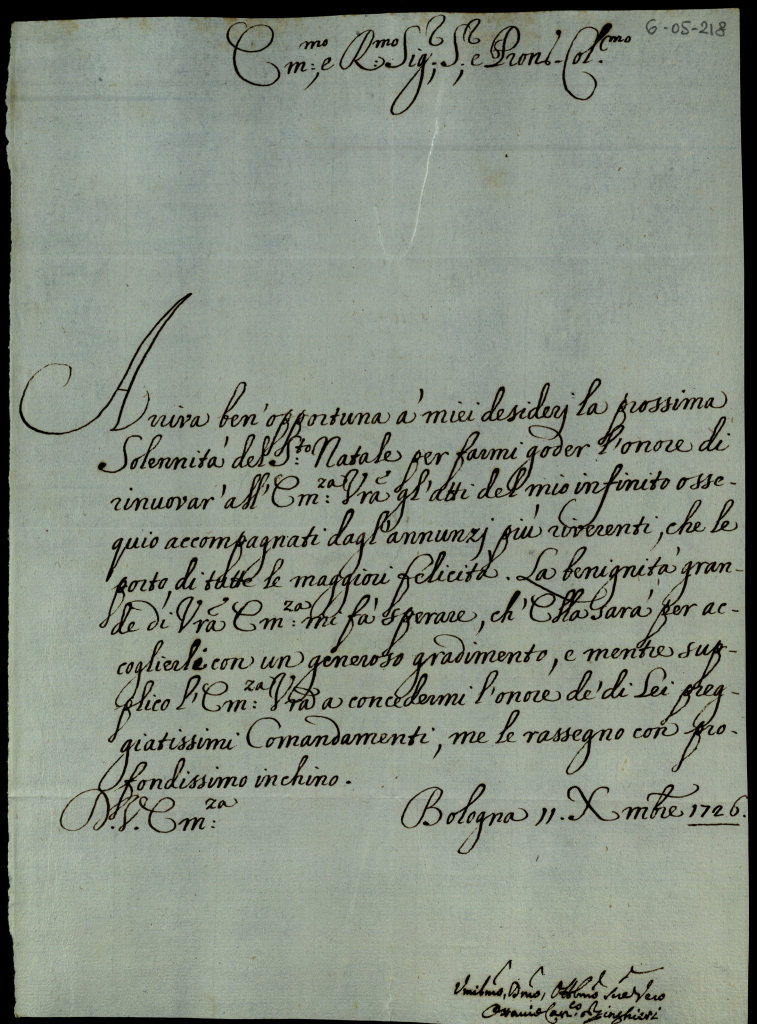 6-05-218
Em:mo, e R:mo Sig:r, S:r, e Pron̄ Col:mo
Arriva ben'opportuna a' miei desiderj la prossima
Solennità del S:to Natale per farmi goder l'onore di
rinuovar' all' Em:za Vr̄a gl'atti del mio infinito osse-
quio accompagnati dagl'annunzj più riverenti, che le
porto, di tutte le maggiori felicità. La benignità gran-
de di Vr̄a Em:za mi fà sperare, ch' Ella sarà per ac-
coglierli con un generoso gradimento, e mentre sup-
plico l'Em:za Vr̄a a concedermi l'onore de' di Lei preg-
giatissimi Comandamenti, me le rassegno con pro-
fondissimo inchino.
D. V. Em:za
Bologna 11. Xmbre 1726.
Umilmo, Dmo, Obblmo Sre Vero